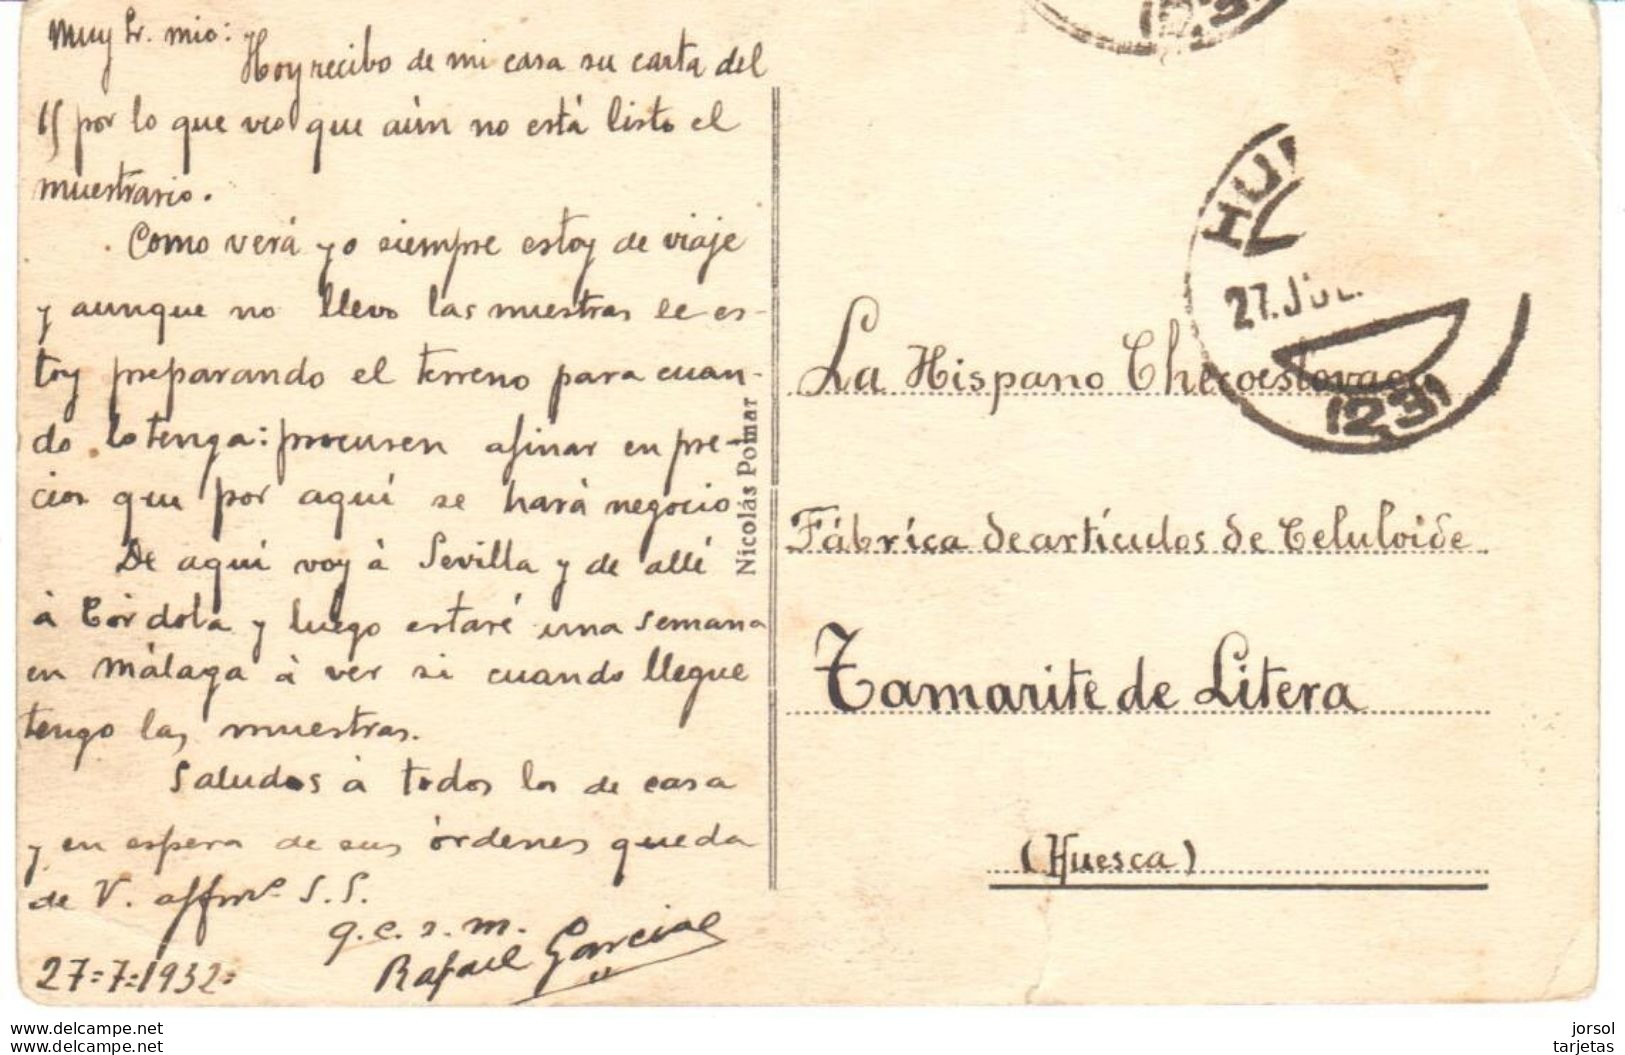 Muy Sr. mio:
Hoy recibo de mi casa su carta del
15 por lo que veo que aún no está listo el
muestrario.
Como verá yo siempre estoy de viaje
y aunque no llevo las muestras le es-
toy preparando el terreno para cuan-
do lo tenga: procuren afinar en pre-
cios que por aquí se hará negocio
De aquí voy à Sevilla y de allí
à Córdola y luego estaré una semana
en Málaga à ver si cuando llegue
tengo las muestras.
Saludos à todos los de casa
y en espera de sus òrdenes queda
de V. affmº S.S.
q.e.s.m.
Rafael
27=7=1932=
Nicolás Pomar
HU
27.JUL.
1231
1231
La Hispano Checoeslovaca
Fábrica de artículos de Celuloide
Tamarite de Litera
(Huesca)
www.delcampe.net
www.delcampe.com
jorsol
tarjetas